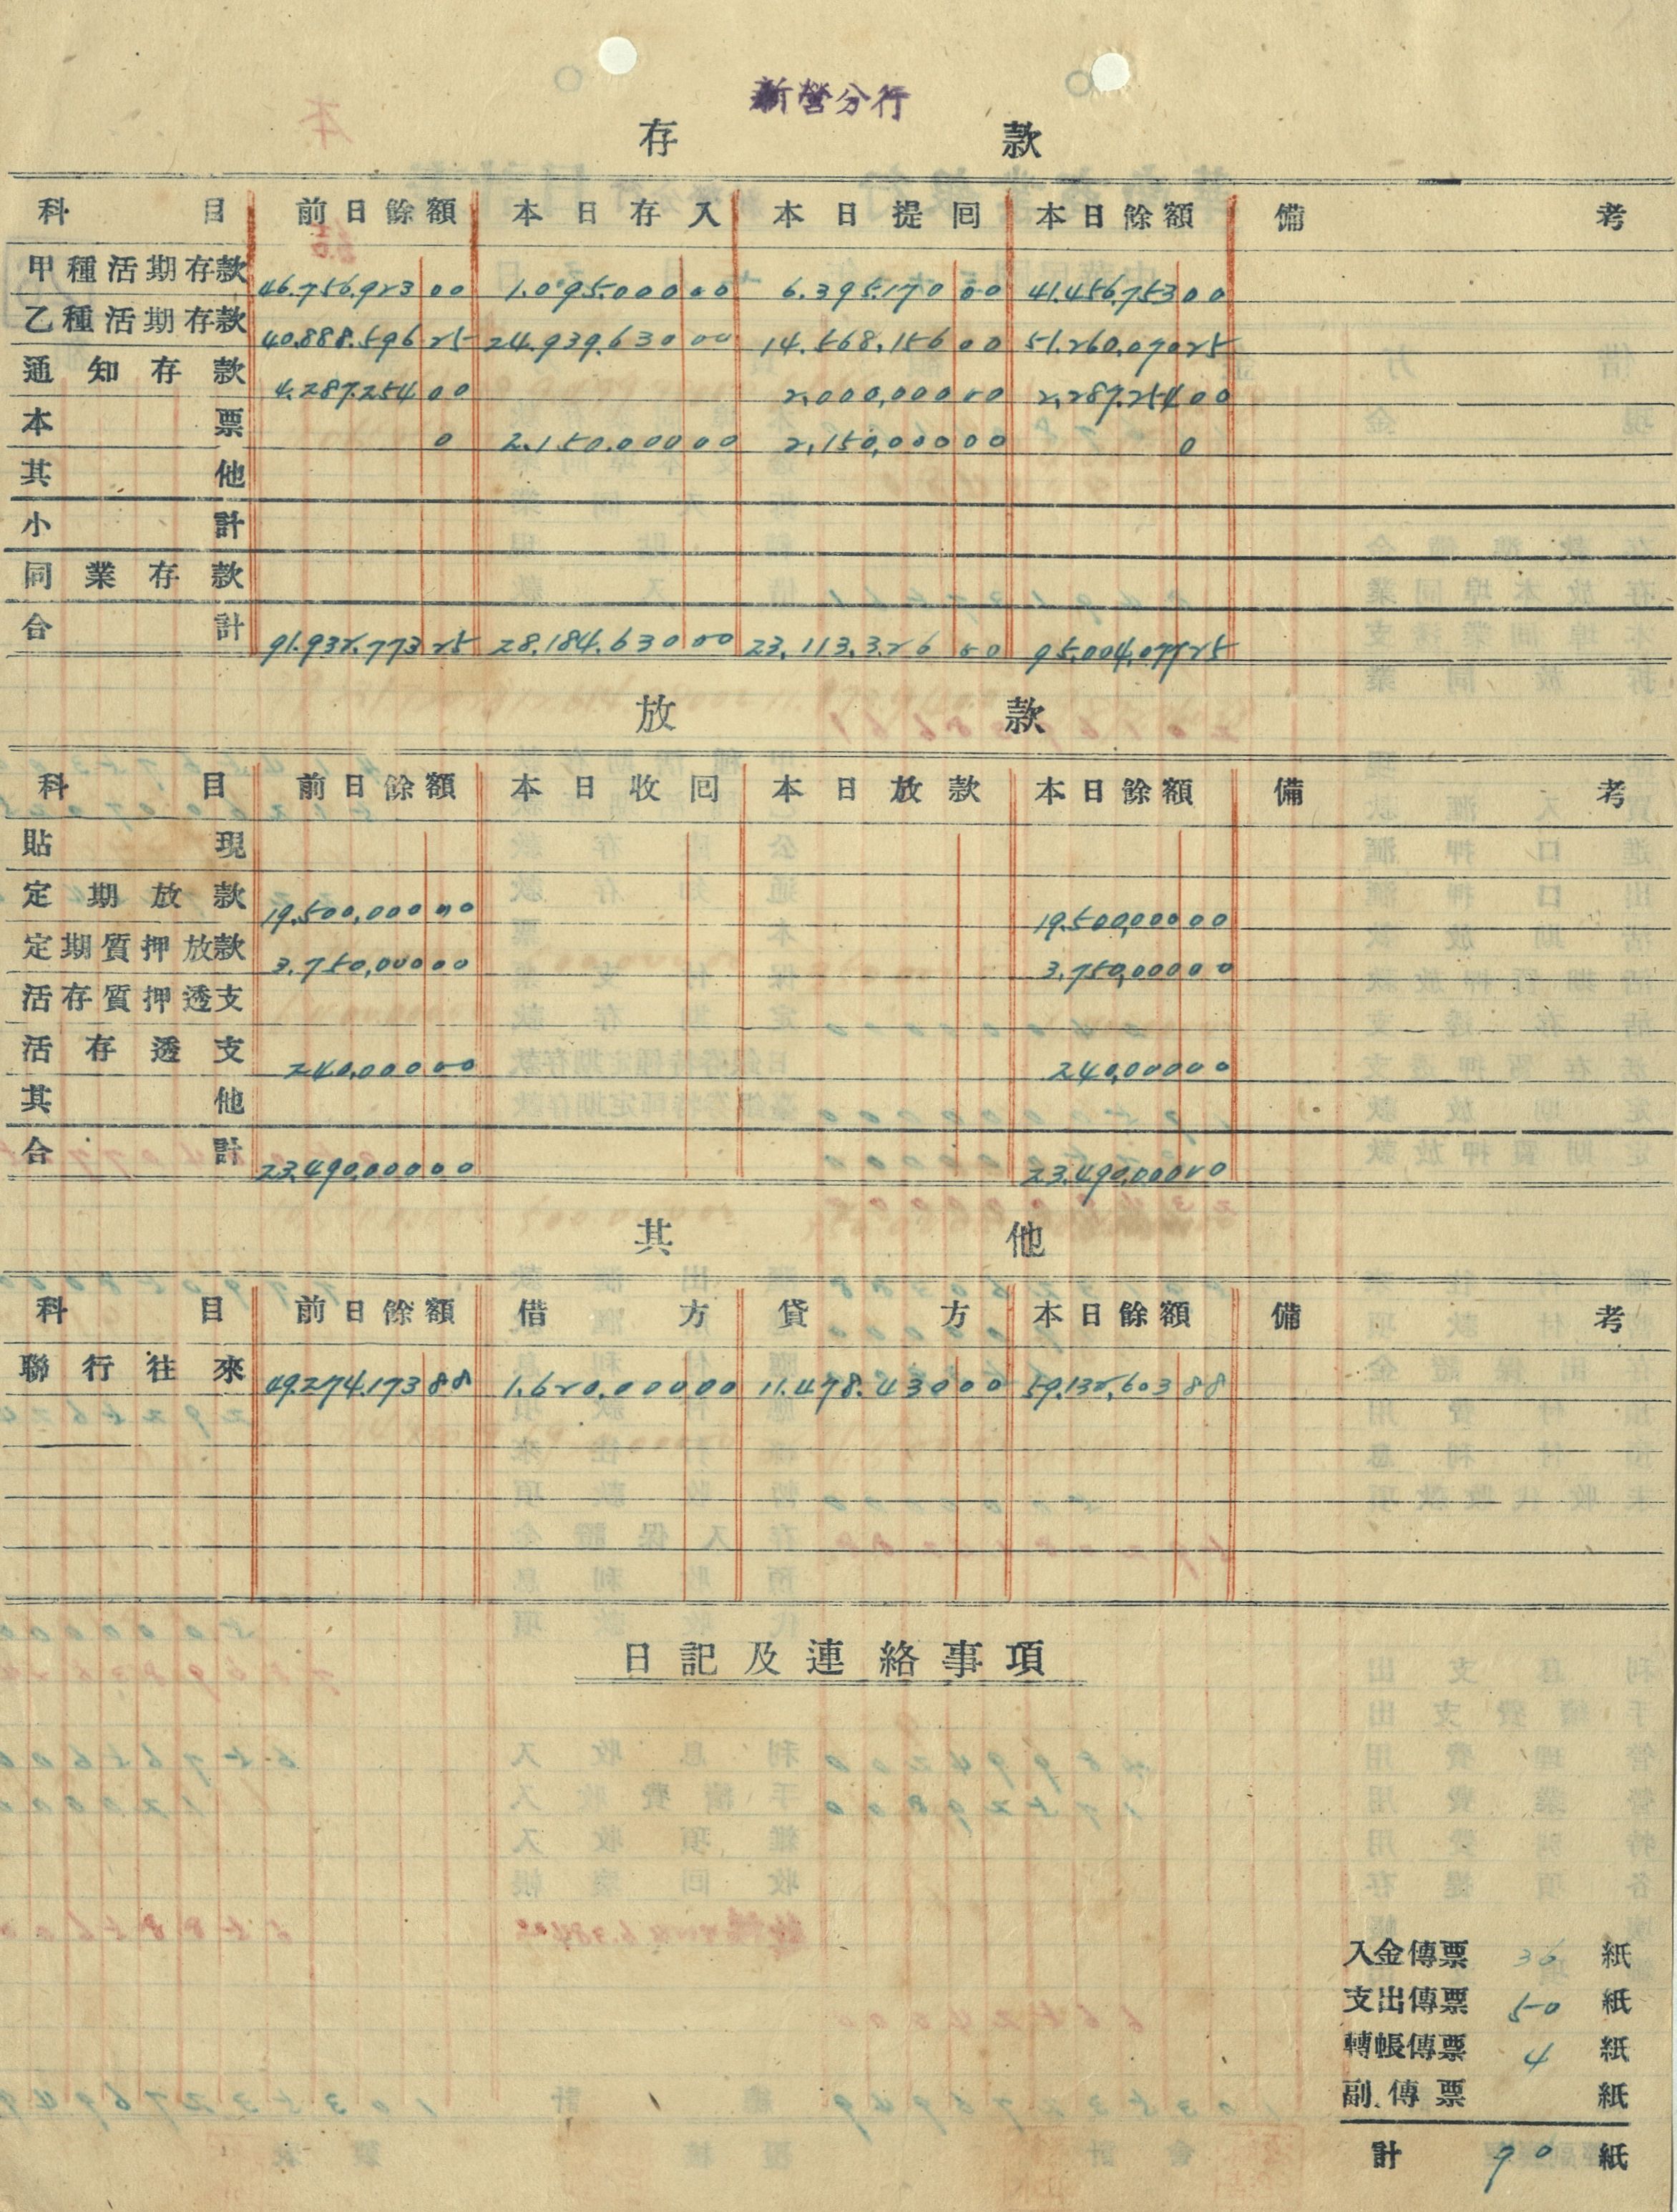 新營分行
存 款
科目 前日餘額 本日存入 本日提回 本日餘額 備考
甲種活期存款 46.756.923 00 1.095.000 00 6.395.170 00 41.456.753 00
乙種活期存款 40.888.596 25 24.939.630 00 14.568.156 00 51.260.070 25
通知存款 4.287.254 00 2,000,000 00 2,287.254 00
本票 0 2.150.000 00 2,150,000 00 0
其他
小計
同業存款
合計 91.932.773 25 28.184.630 00 25.113.326 00 95.004,077 25
放 款
科目 前日餘額 本日收回 本日放款 本日餘額 備考
貼現
定期放款 19.500,000 00 19.500,000 00
定期質押放款 3.750,000 00 3.750,000 00
活存質押透支
活存透支 240,000 00 240,000 00
其他
合計 23.490,000 00 23.490,000 00
其 他
科目 前日餘額 借方 貸方 本日餘額 備考
聯行往來 49.274.173 88 1.620,000 00 11.478.430 00 59.132,603 88
日記及連絡事項
入金傳票 36 紙
支出傳票 50 紙
轉帳傳票 4 紙
副傳票 紙
計 90 紙